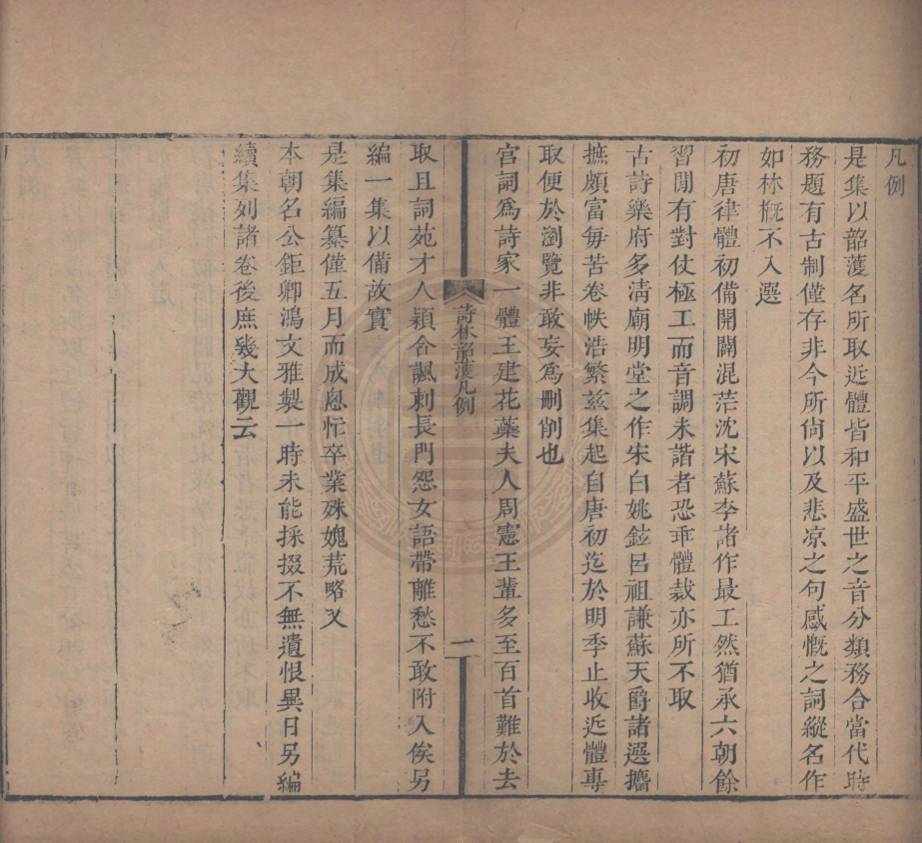 凡例
是集以韶濩名所取近體皆和平盛世之音分類務合當代時
務題有古制僅存非今所尙以及悲凉之句感慨之詞縱名作
如林槪不入選
初唐律體初備開闢混茫沈宋蘇李諸作最工然猶承六朝餘
習閒有對仗極工而音調未諧者恐乖體裁亦所不取
古詩樂府多淸廟明堂之作宋白姚鉉呂祖謙蘇天爵諸選攟
摭頗富每苦卷帙浩繁玆集起自唐初迄於明季止收近體專
取便於瀏覽非敢妄爲刪削也
宮詞爲詩家一體王建花蘂夫人周憲王輩多至百首難於去
詩林韶濩凡例
一
取且詞苑才人穎合諷刺長門怨女語帶離愁不敢附入俟另
編一集以備故實
是集編纂僅五月而成恖忙卒業殊媿荒略又
本朝名公鉅卿鴻文雅製一時未能採掇不無遺恨異日另編
續集列諸卷後庶幾大觀云